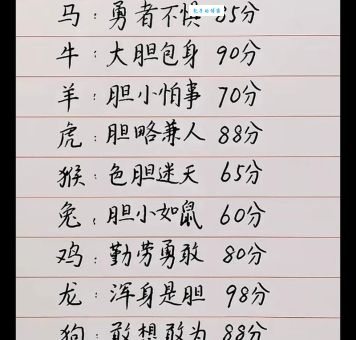 马：勇者不惧 85分
牛：大胆包身 90分
羊：胆小怕事 70分
虎：胆略兼人 88分
猴：色胆迷天 65分
兔：胆小如鼠 60分
鸡：勤劳勇敢 80分
龙：浑身是胆 98分
狗：敢想敢为 88分